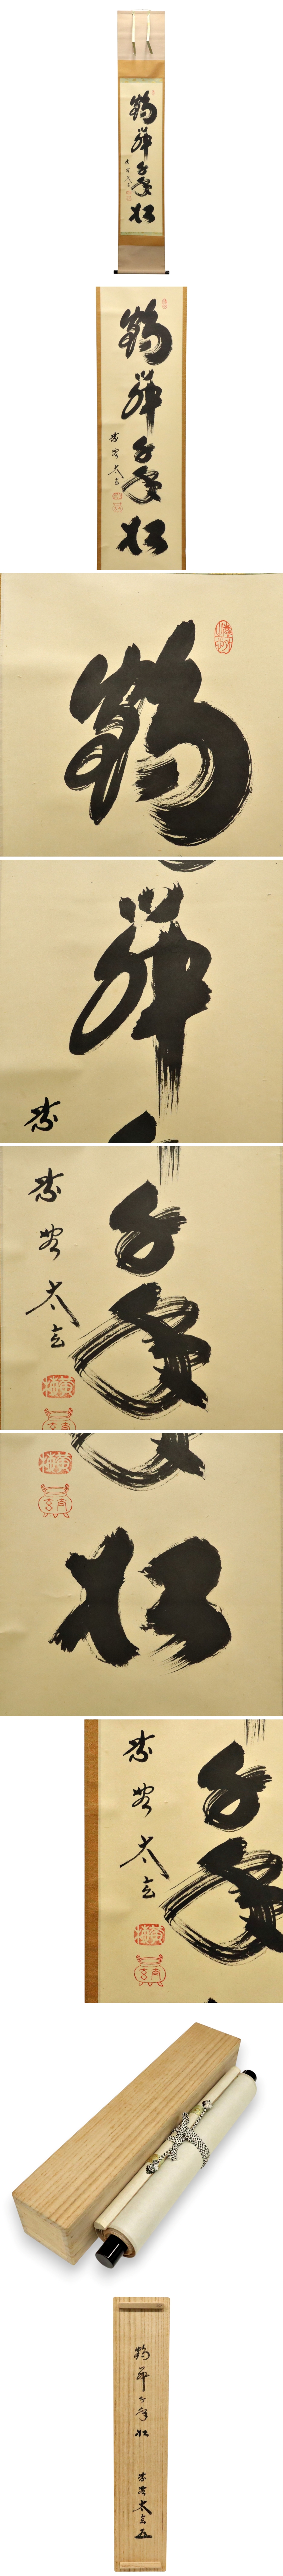 鶴舞千年松
紫野太玄
鶴舞千年松
紫野太玄
鶴
舞
紫
千年
紫野太玄
松
千年
紫野太玄
鶴舞千年松
紫野太玄